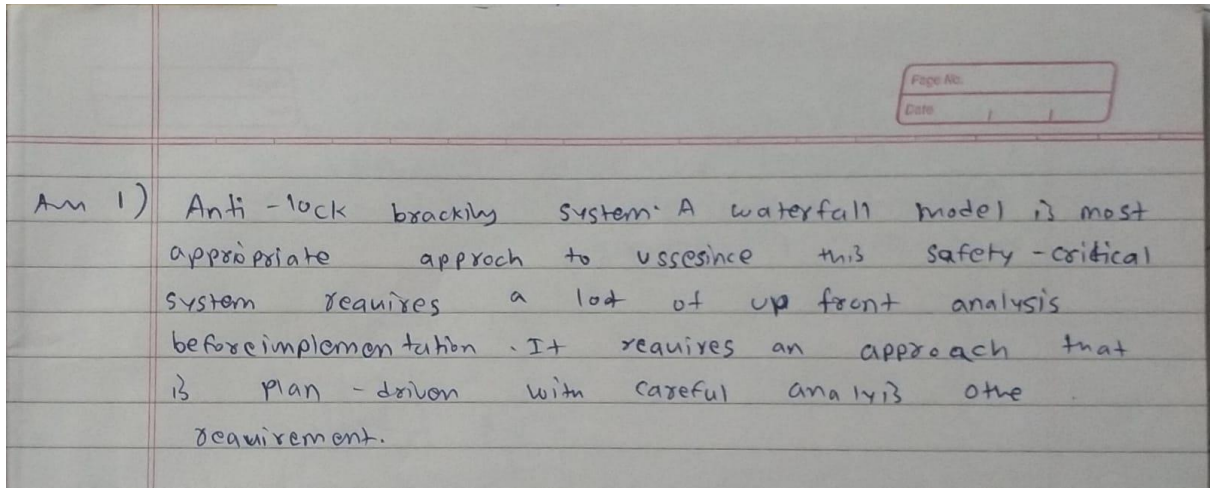 Page No.
Date
Ans 1) Anti-lock bracking system. A waterfall model is most
appropriate approch to ussesince this safety-critical
system requires a lot of up front analysis
beforeimplementation. It requires an approach that
is plan-driven with careful analyis othe
requirement.